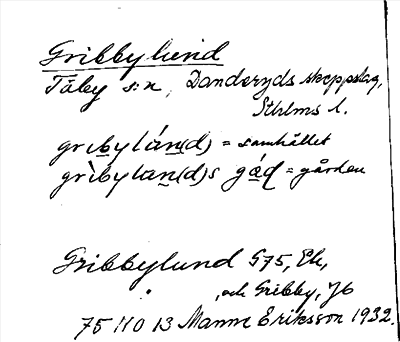 Gribbylund
Täby s:n, Danderyds skeppslag,
Sthlms l.
grıbylán(d) = samhället
grìbylan(d)s gád = gården
Gribbylund S75, Ek,
och Gribby, J6
75 11 0 13 Manne Eriksson 1932.